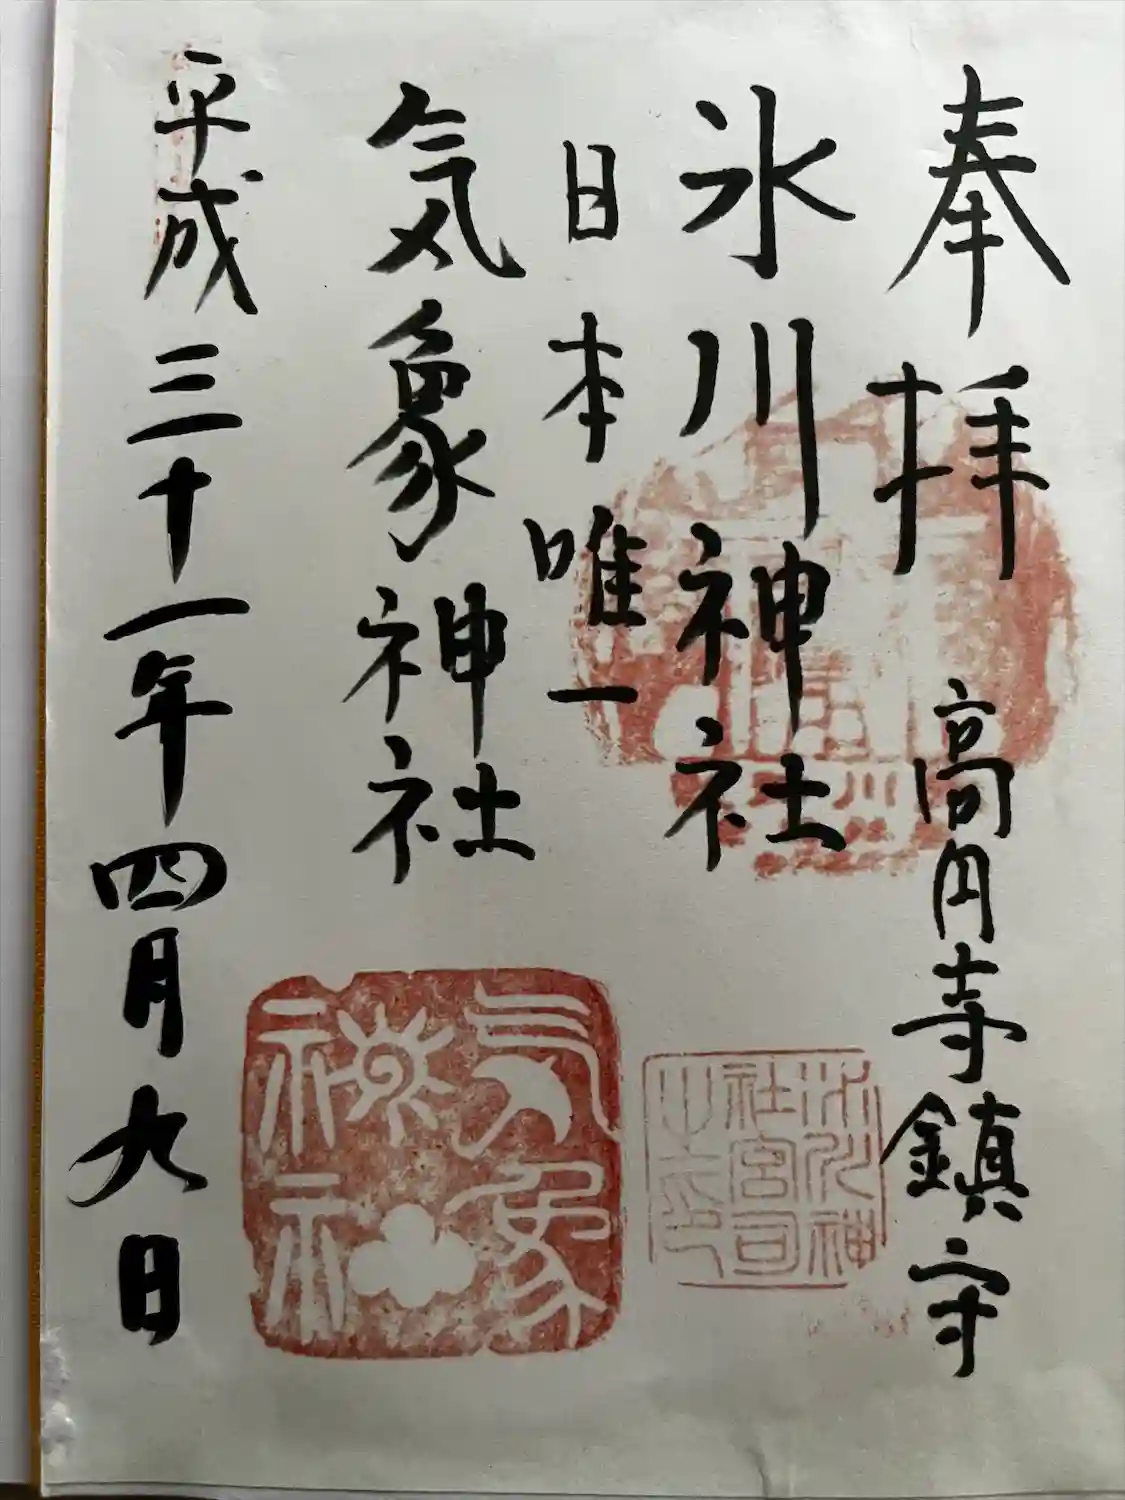 奉拝
高円寺鎮守
氷川神社
日本唯一
気象神社
平成三十一年四月九日
気象神社
氷川神
社宮司
之印